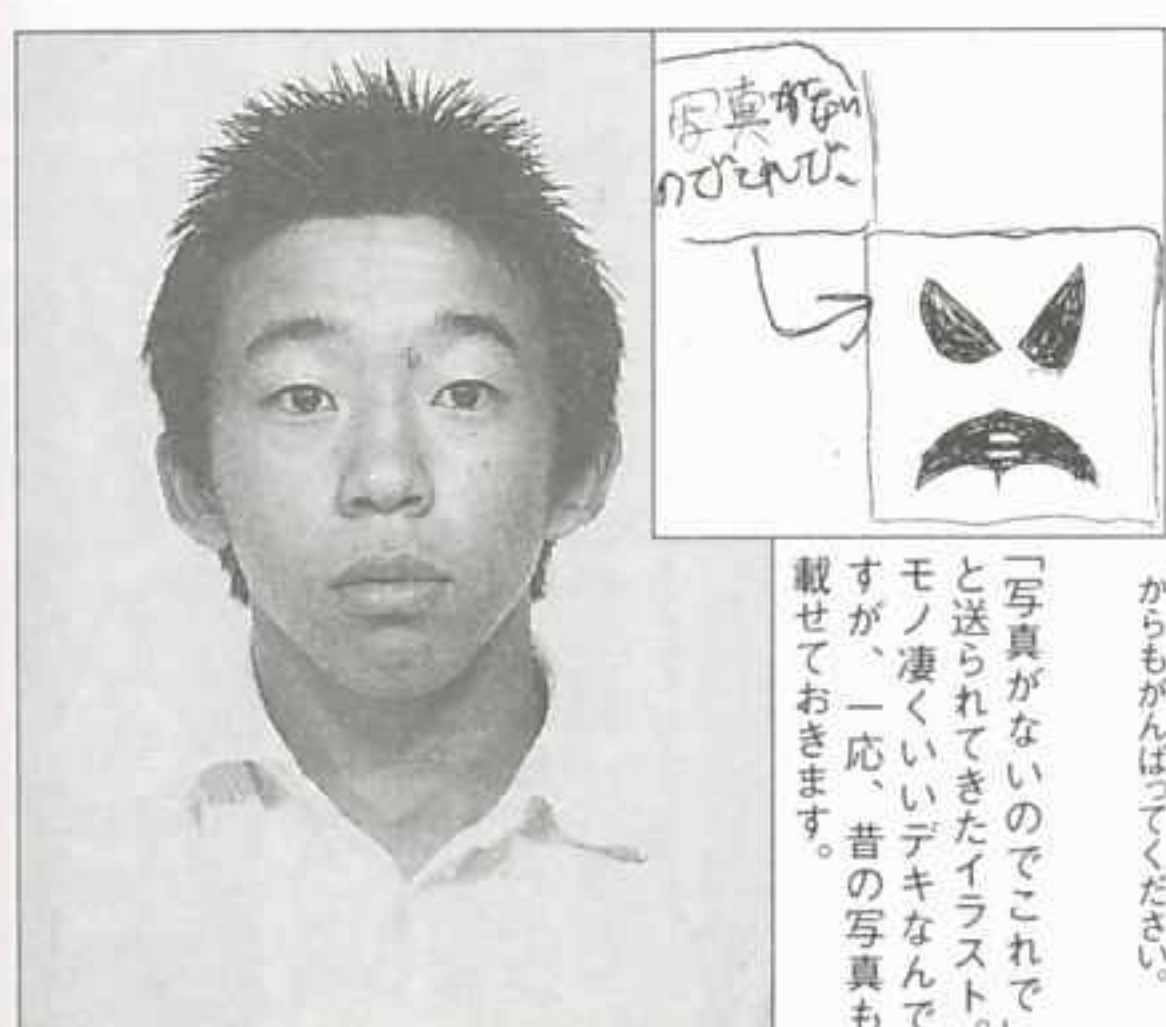 写真がない
のでこれで、
からもがんばってください。
「写真がないのでこれで」
と送られてきたイラスト。
モノ凄くいいデキなんで
すが、一応、昔の写真も
載せておきます。